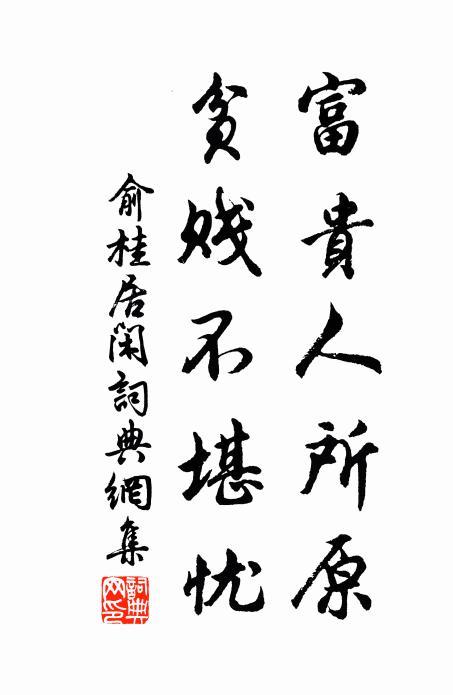 富貴人所原
貧贱不堪忧
俞桂居闲詞典網集
詞典网印